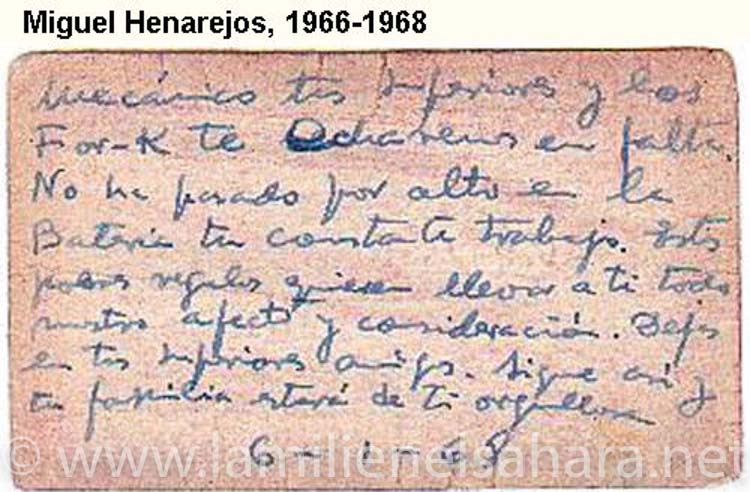 Miguel Henarejos, 1966-1968
Mecánico tus superiores y los
For-K te Echaremos en falta.
No ha pasado por alto en la
Bateria tu constante trabajo. Estos
pobres regalos quieren llevar a ti todo
nuestro afecto y consideración. Dejas
en tus superiores amigos. Sigue asi y
tu familia estará de ti orgullosa
6-1-68
© www.lamilienelsahara.net